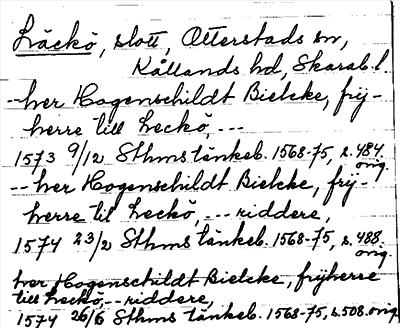 Läckö, slott, Otterstads sn,
Kållands hd, Skarab. l.
-- her Hogenschildt Bielcke, frij-
herre till Leckö, ---
1573 9/12 Sthms tänkeb. 1568-75, s. 484.
orig.
-- her Hogenschildt Bielcke, frij-
herre til Leckö, --- riddere,
1574 23/2 Sthms tänkeb. 1568-75, s. 488
orig.
her Hogenschildt Bielcke, frijherre
till Leckö, -- riddere,
1574 26/6 Sthms tänkeb. 1568-75, s. 508. orig.